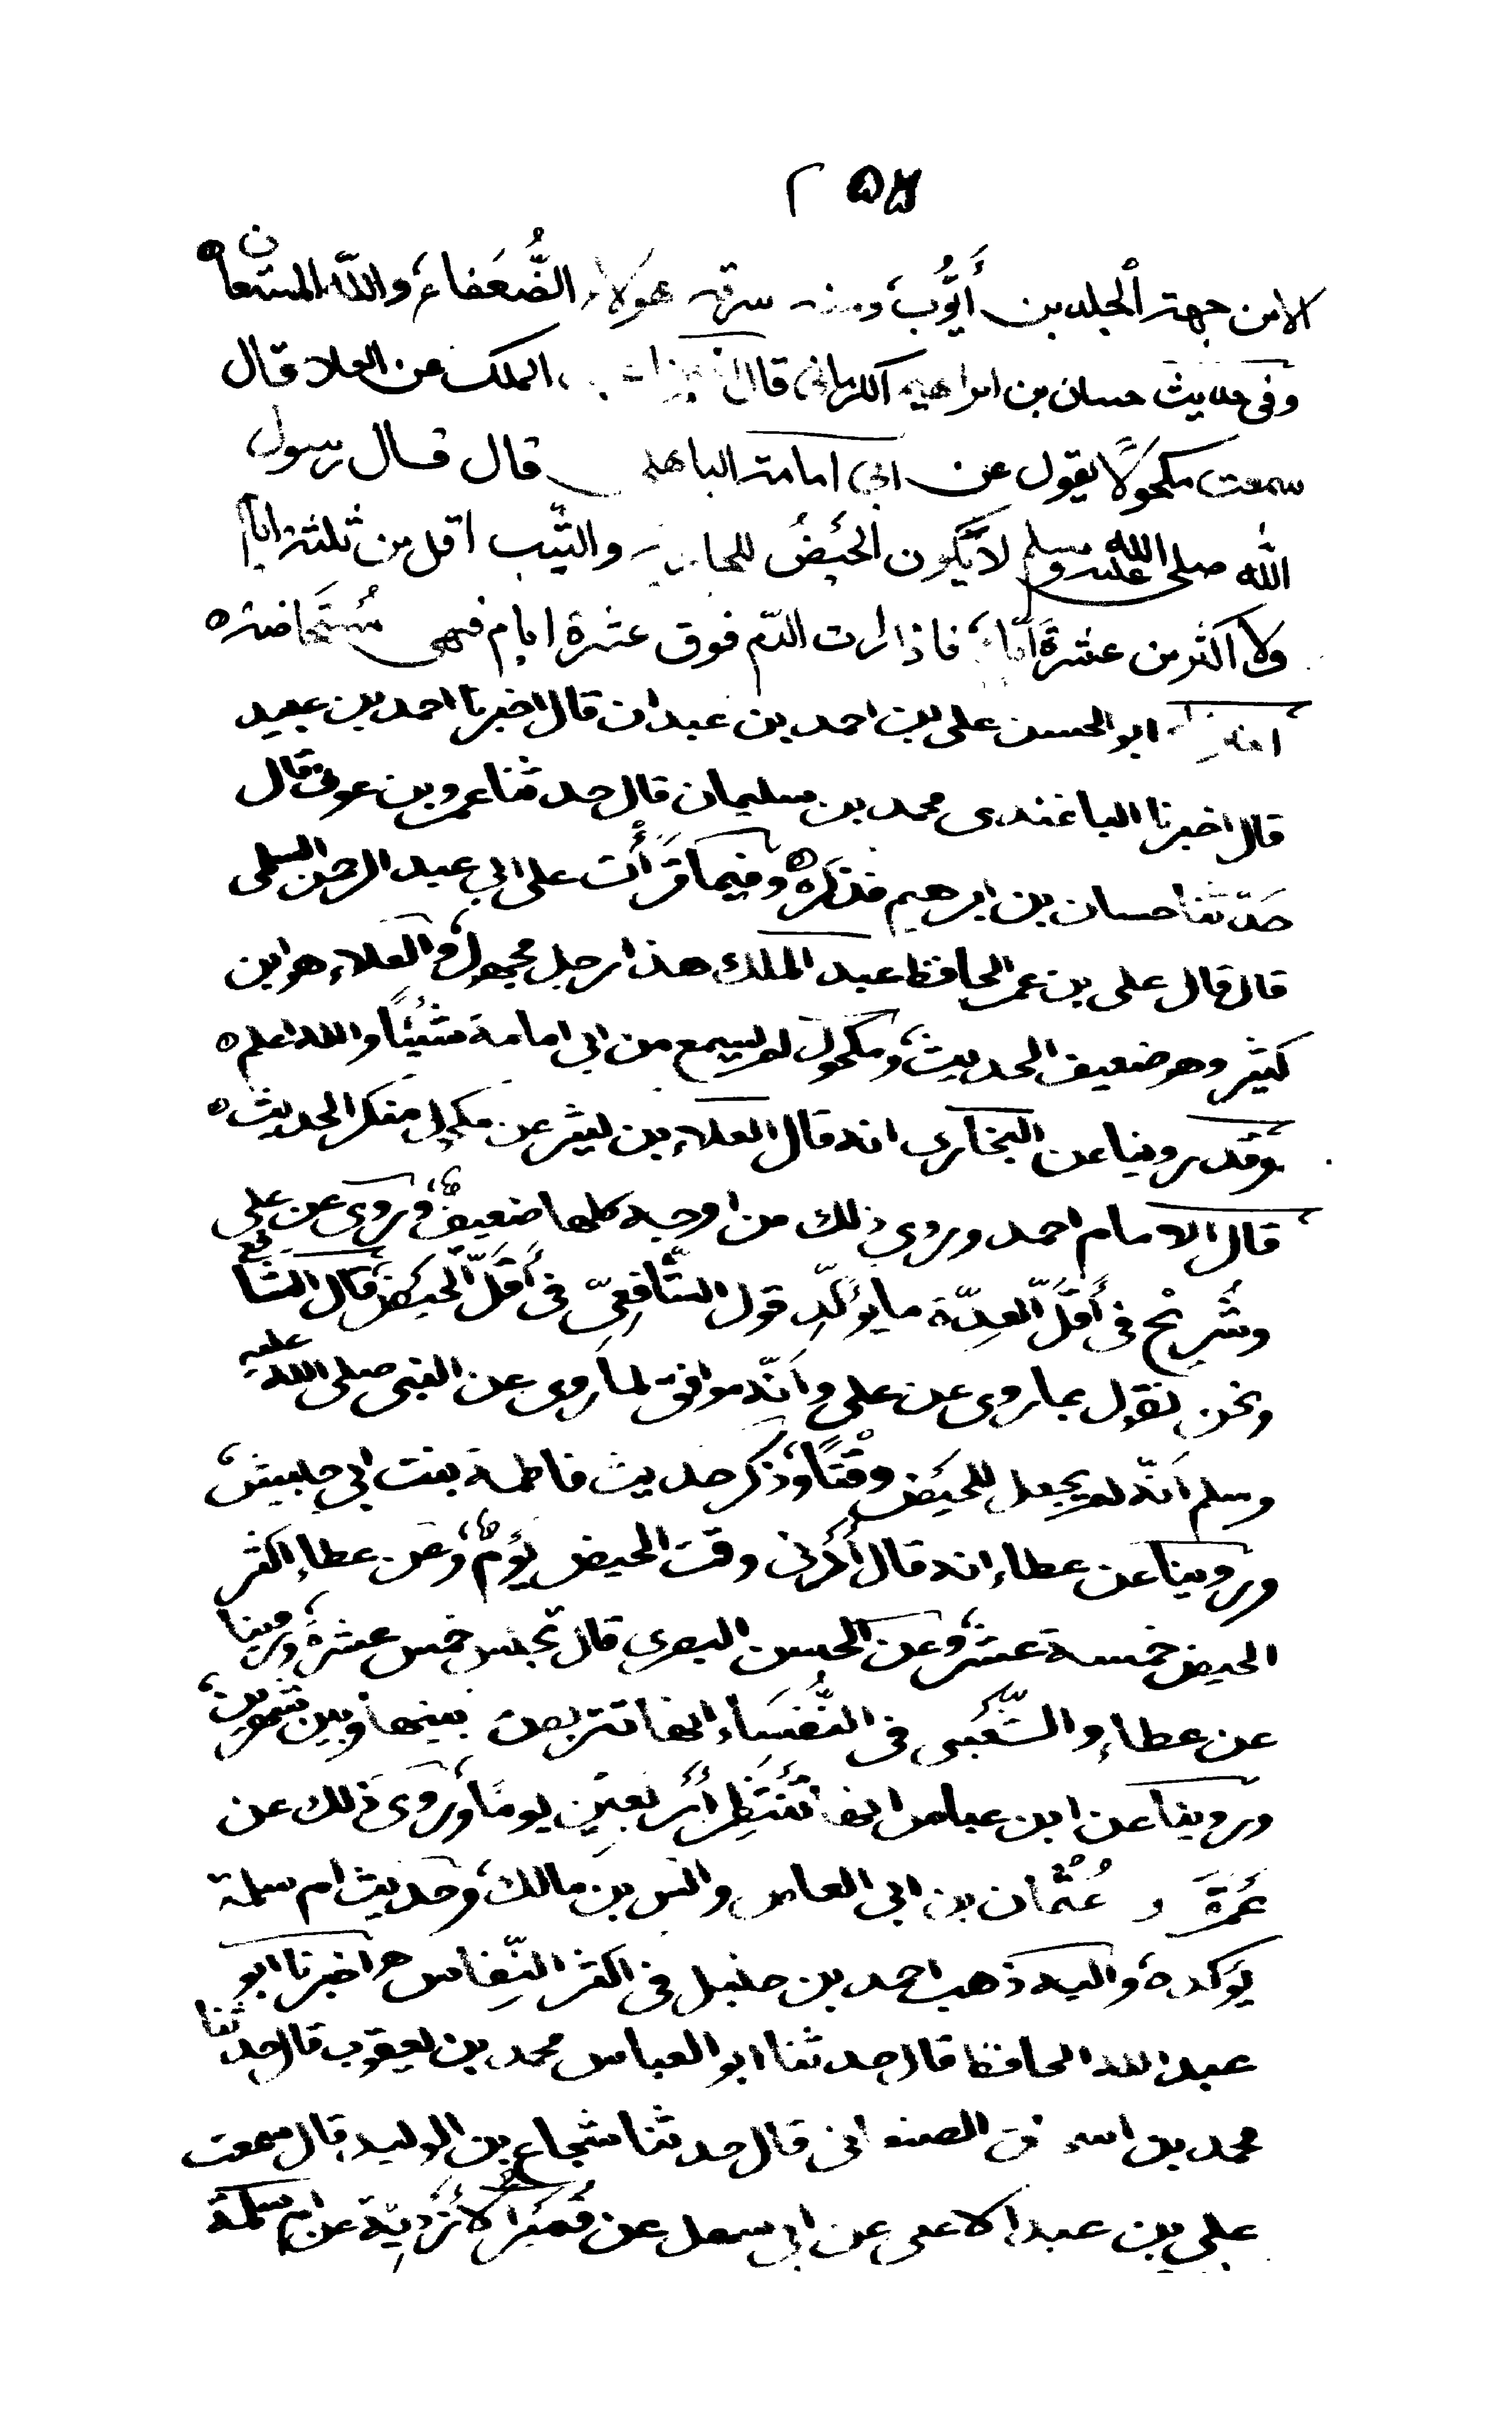 ٢٥٧
الا من جهة الجلد بن أيُّوب، ومنه سرقه هولاء الضُّعَفاء، والله المستعان ه
وفى حديث حسان بن ابراهيم الكرمانى قال الملك عن العلا قال
سمعت مكحولًا يقول عن ابى امامة الباهلى قال قال رسول
الله صلى الله عليه وسلم لا يكون الحَيْضُ للجارية والثيّب اقل من ثلثة ايام
ولا اكثر من عشرة أيام، فاذا رات الدّم فوق عشرة ايام فهى مُسْتَحَاضة ه
اخبرنا ابو الحسن على بن احمد بن عبدان قال اخبرنا احمد بن عبيد
قال اخبرنا الباغندى محمد بن سليمان قال حدثنا عمرو بن عون قال
حَدّثنا حسان بن ابرهيم فذكره ه وفيما قَرَأْت على ابى عبد الرحمن السلمى
قال قال على بن عمر الحافظ عبد الملك هذا رجل مجهول، والعلاء هو ابن
كثير وهو ضعيف الحديث، ومكحول لم يسمع من ابى امامة شَيْئًا والله اعلم ه
وقد روينا عن البخارى انه قال العلاء بن كثير عن مكحول منكر الحديث ه
قال الامام احمد وروى ذلك من اوجه كلها ضعيف، وروى عن على
وشُرَيْح فى أَقَلّ العِدّة ما يؤكّد قول الشّافِعِىّ فى أَقَلّ الحَيْض، قال الشافعى
ونحن نقول بما روى عن على وانّه موافق لما روى عن النبى صلى الله عليه
وسلم أنّه لم يجعل للحَيْض وقْتًا، وذكر حديث فاطمة بنت ابى حبيش،
وروينا عن عطاء انه قال أَدْنى وقت الحيض يَوْمٌ، وعن عطاء اكثر
الحيض خمسة عشر، وعن الحسن البصرى قال تجلس خمس عشرة، وروينا
عن عطاء والشَّعْبى فى النُّفَسَاء انها تتربص بينها وبين شهرين،
وروينا عن ابن عباس انها تَنْتَظِر أَرْبَعِين يومًا، وروى ذلك عن
عُمَر و عُثْمان بن ابى العاص وانس بن مالك، وحديث ام سلمة
يؤكده، واليه ذهب احمد بن حنبل فى اكثر النِّفاس ه اخبرنا ابو
عبد الله الحافظ قال حدثنا ابو العباس محمد بن يعقوب قال حدثنا
محمد بن اسحق الصنعانى قال حدثنا شجاع بن الوليد قال سمعت
على بن عبد الاعلى عن ابى سهل عن مُسَّة الأَزْدِيّة عن ام سلمة